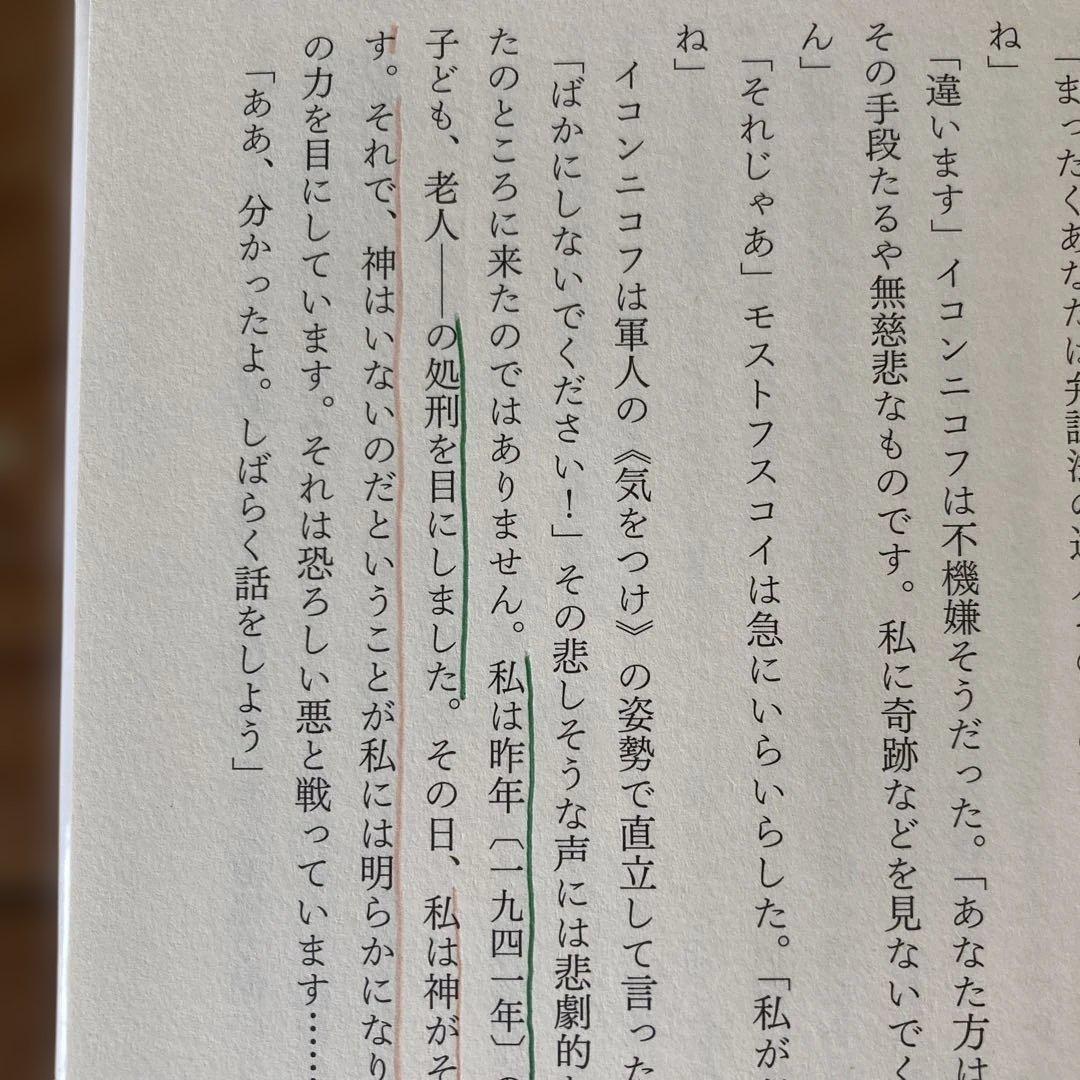 「まったくあなたは弁証法の
ね」
「違います」イコンニコフは不機嫌そうだった。「あなた方は
その手段たるや無慈悲なものです。私に奇跡などを見ないでく
ん」
「それじゃあ」モストフスコイは急にいらいらした。「私が
ね」
イコンニコフは軍人の《気をつけ》の姿勢で直立して言った
「ばかにしないでください！」その悲しそうな声には悲劇的
たのところに来たのではありません。私は昨年〔一九四一年〕の
子ども、老人――の処刑を目にしました。その日、私は神がそ
す。それで、神はいないのだということが私には明らかになり
の力を目にしています。それは恐ろしい悪と戦っています……
「ああ、分かったよ。しばらく話をしよう」